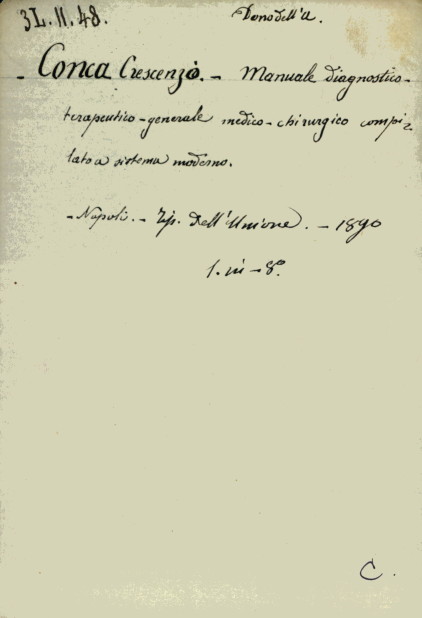 3L. II. 48.
Dono dell'A.
- Conca Crescenzo. - Manuale diagnostico-
terapeutico-generale medico-chirurgico compi-
lato a sistema moderno.
- Napoli. - Tip. Dell'Unione. - 1890
1. in - 8.º
C.